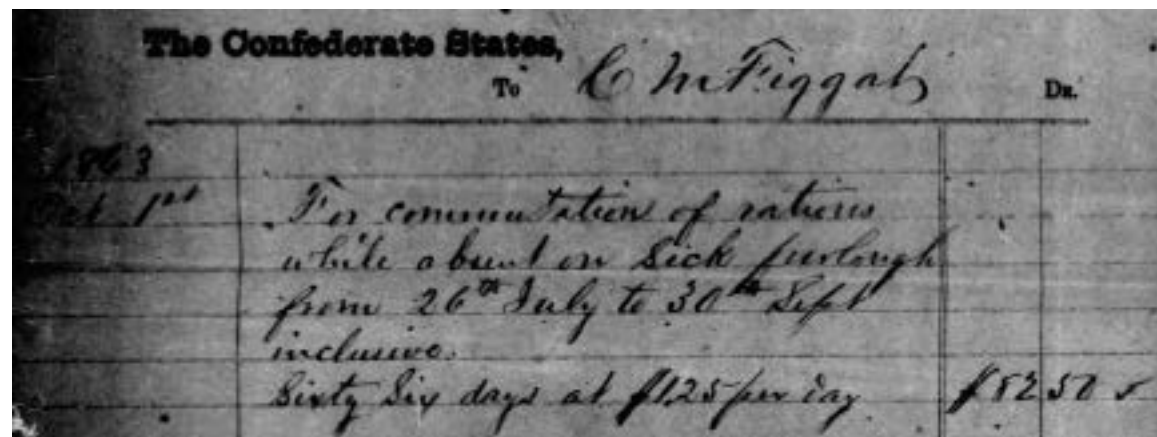 The Confederate States,
To C McFiggat Dr.
1863
Oct 1st For commutation of rations
while absent on Sick furlough
from 26th July to 30th Sept
inclusive.
Sixty Six days at $1.25 per day $82 50